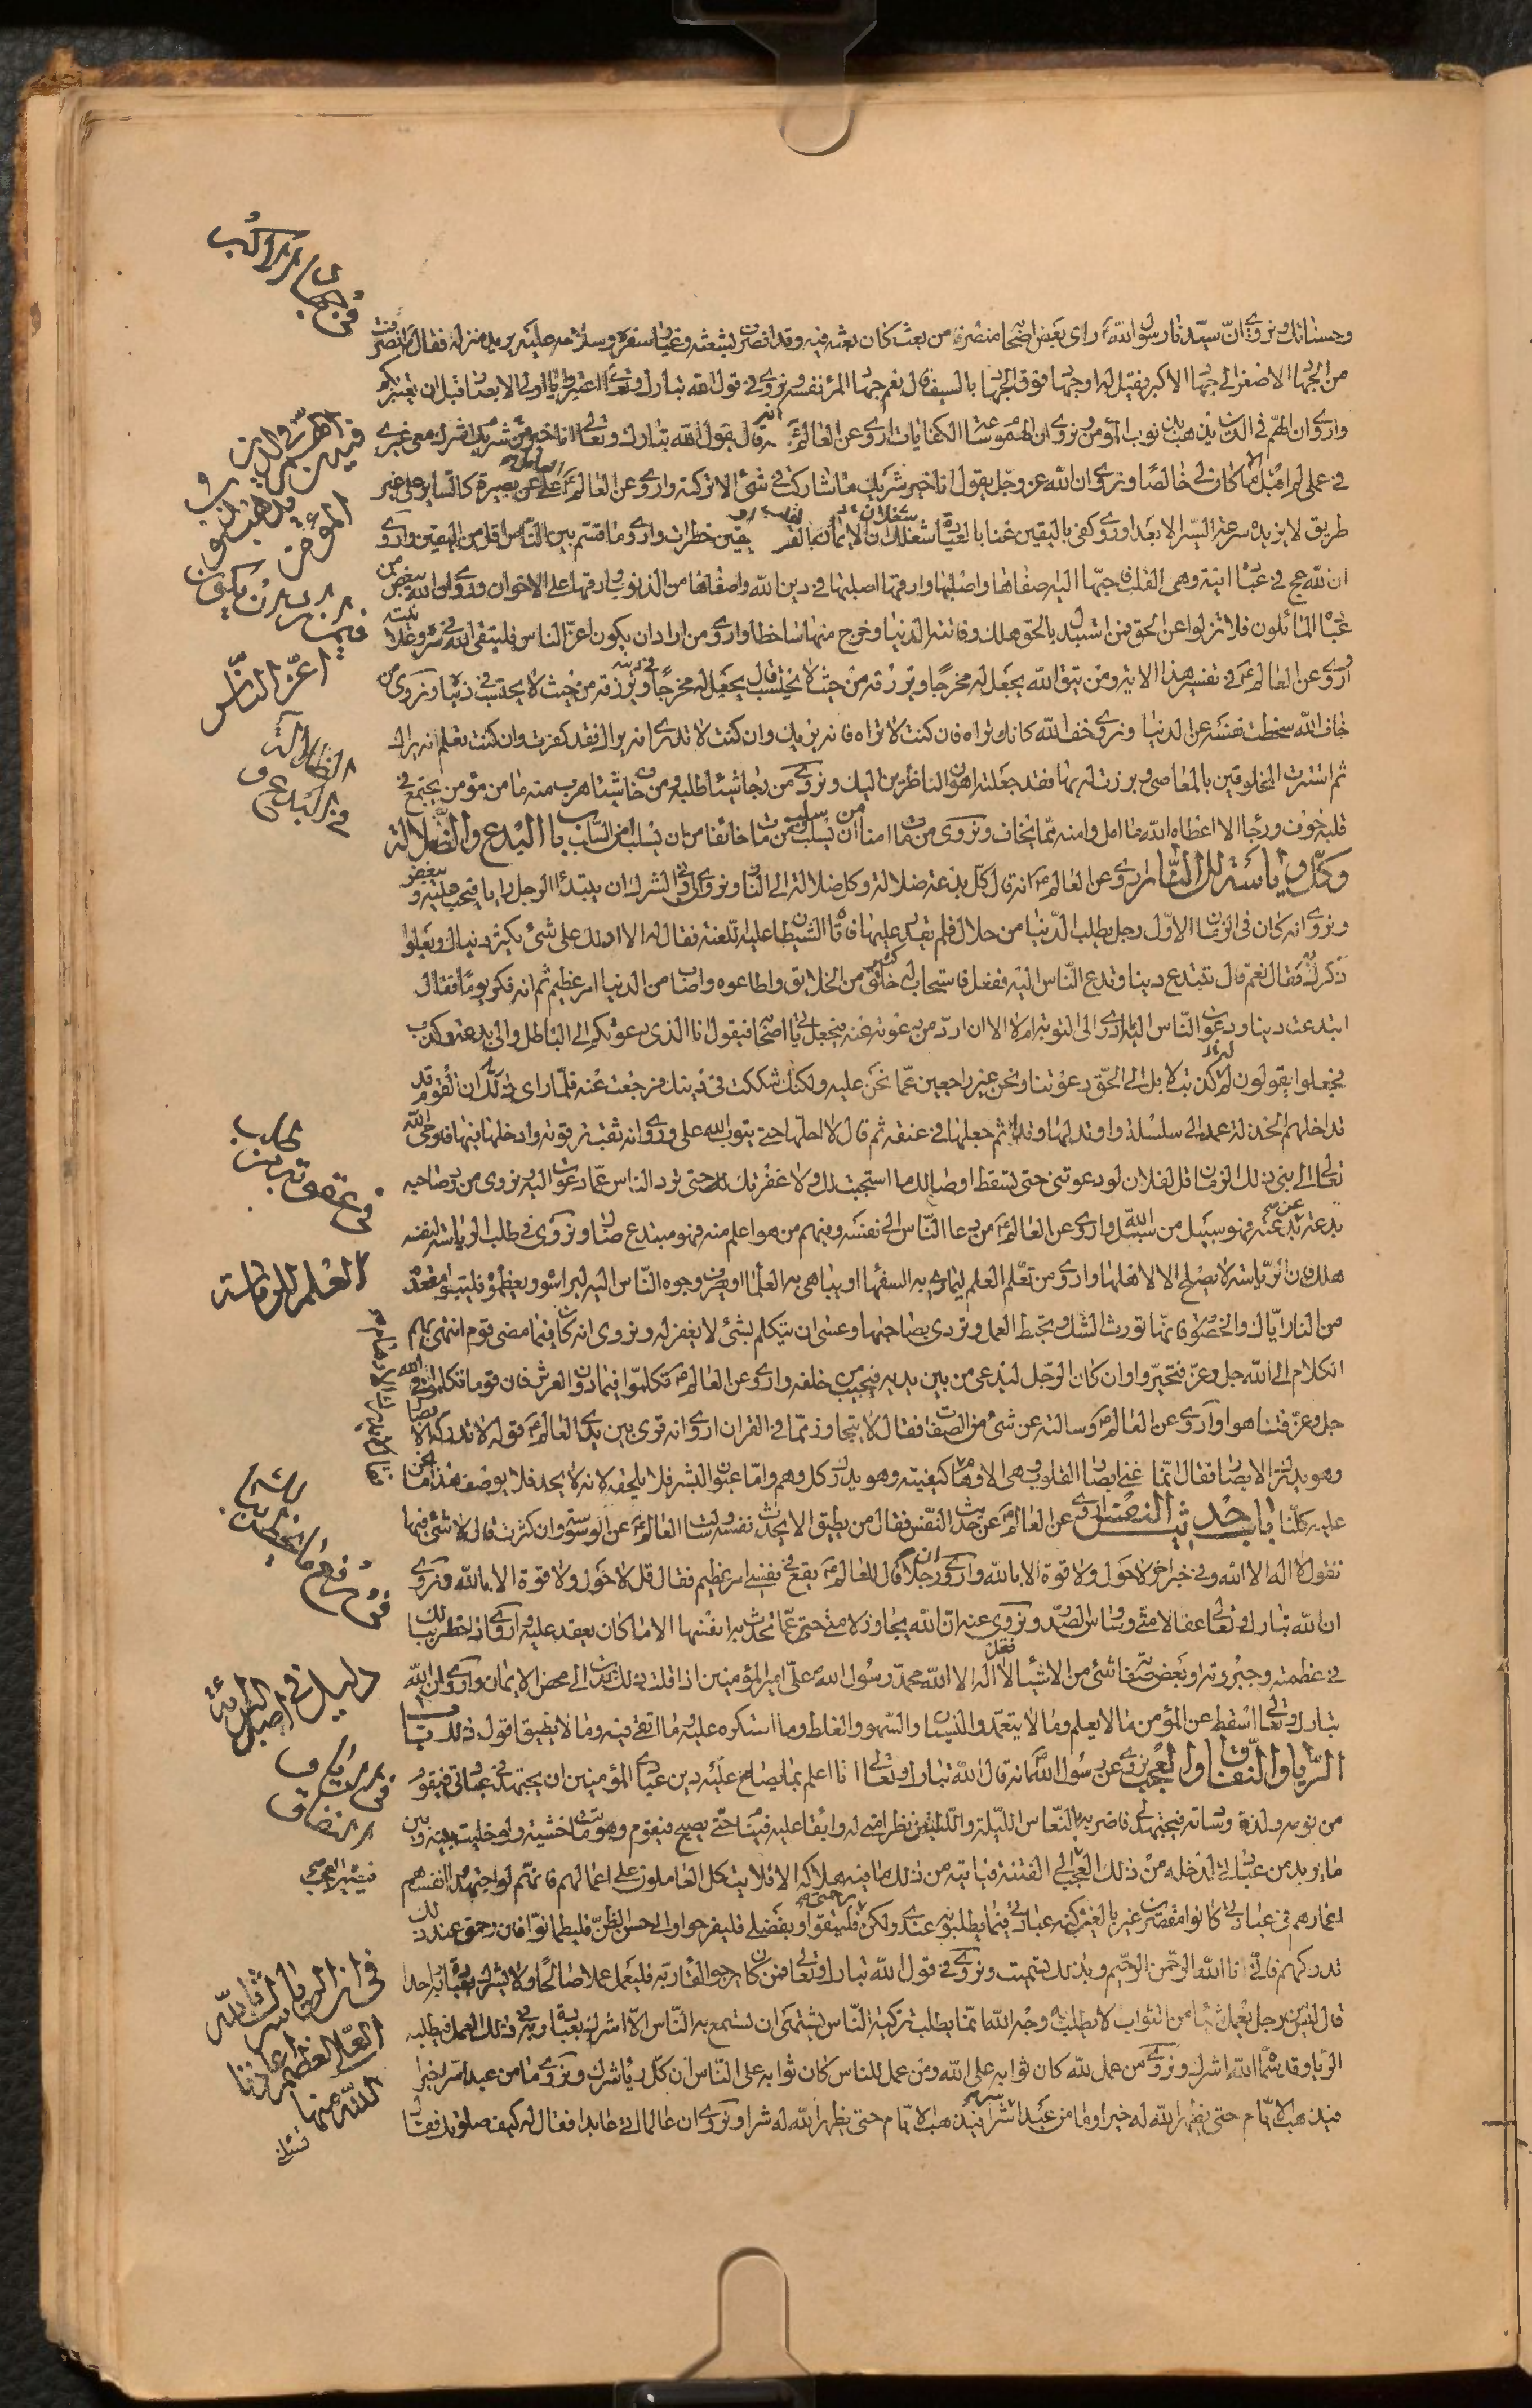 وحسناتك ونروي ان سيدنا رسول الله رأى بعض أصحابه منصرفا من بعث كان بعثه فيه وقد انصرف بشعثه وغبار سفره وسلاحه عليه يريد منزله فقال انصرفت
من الجهاد الاصغر الى الجهاد الاكبر فقيل له اوجهاد فوق الجهاد بالسيف قال نعم جهاد المرء نفسه ونروي في قول الله تبارك وتعالى فاعتبروا يا اولي الابصار قبل ان يعتبر بكم
واروي ان الهم في الدين يذهب بذنوب المؤمن ونروي ان الهموم ساعات الكفارات اروي عن العالم انه قال يقول الله تبارك وتعالى انا خير شريك من اشرك معي غيري
في عملي لم اقبل الا ما كان لي خالصا ونروي ان الله عز وجل يقول انا خير شريك ما شوركت في شئ الا تركته واروي عن العالم العامل على غير بصيرة كالسائر على غير
طريق لا يزيده سرعة السير الا بعدا وروي كفى باليقين غنا وبالعبادة شغلا وان الايمان بالقلب يقين خطرات واروي ما قسم بين الناس اقل من اليقين واروي
ان لله في عباده آنية وهي القلب فاحبها اليه اصفاها واصلبها وارقها اصلبها في دين الله واصفاها من الذنوب وارقها على الاخوان وروي ان الله يبغض من
عباده المائلون فلا تزلوا عن الحق فمن استبدل بالحق هلك وفاتته الدنيا وخرج منها ساخطا واروي من اراد ان يكون اعز الناس فليتق الله في سره وعلانيته
اروي عن العالم في تفسير هذا الاية ومن يتق الله يجعل له مخرجا ويرزقه من حيث لا يحتسب قال يجعل له مخرجا في دينه ويرزقه من حيث لا يحتسب في دنياه ونروي من
خاف الله سخطت نفسه عن الدنيا ونروي خف الله كانك تراه فان كنت لا تراه فانه يريك وان كنت لا تدري انه يراك فقد كفرت وان كنت تعلم انه يراك
ثم استترت المخلوقين بالمعاصي وبرزت له بها فقد جعلته اهون الناظرين اليك ونروي من رجا شيئا طلبه ومن خاف شيئا هرب منه ما من مؤمن يجتمع في
قلبه خوف ورجاء الا اعطاه الله ما امل وامنه مما يخاف ونروي من مات امنا من ان يسلب سلب ومن مات خائفا من ان يسلب امن السلب باب البدع والضلالة
وكل رياسة الى النار اروي عن العالم انه قال كل بدعة ضلالة وكل ضلالة الى النار ونروي ادنى الشرك ان يبتدئ الرجل رايا فيحب عليه ويبغض
ونروي انه كان في الزمان الاول رجل يطلب الدنيا من حلال فلم يقدر عليها فاتاه الشيطان عليه اللعنة فقال له الا ادلك على شئ يكثر دنياك ويعلو
ذكرك به فقال نعم قال تبتدع دينا وتدعو الناس اليه ففعل فاستجاب له خلق كثير من الخلايق واطاعوه واصاب من الدنيا امر عظيم ثم انه فكر يوما فقال
ابتدعت دينا ودعوت الناس اليه ما ادري الى التوبة ام لا الا ان ارد من دعوته عنه فجعل ياتي اصحابه فيقول انا الذي دعوتكم الى الباطل والى بدعة وكذب
فجعلوا يقولون له كذبت لا بل الى الحق دعوتنا ونحن غير راجعين عما نحن عليه ولكنك شككت في دينك فرجعت عنه فلما راى ذلك ان القوم قد
تداخلهم الخذلان عمد الى سلسلة واوتد لها وتدا ثم جعلها في عنقه ثم قال لا احلها حتى يتوب الله علي وروي انه ثقب ترقوته وادخلها فيها فاوحى الله
تعالى الى نبي ذلك الزمان قل لفلان لو دعوتني حتى تسقط اوصالك ما استجبت لك ولا غفرت لك حتى ترد الناس عما دعوت اليه ونروي من رد صاحب
بدعة عن بدعته فهو سبيل من سبيل الله واروي عن العالم من دعا الناس الى نفسه وفيهم من هو اعلم منه فهو مبتدع ضال ونروي في طلب الرياسة لنفسه
هلك فان الرياسة لا تصلح الا لاهلها واروي من تعلم العلم ليماري به السفهاء او يباهي به العلماء او يصرف وجوه الناس اليه ليراسوه ويعظموه فليتبوء مقعده
من النار اياك والخصومة فانها تورث الشك وتحبط العمل وتردي بصاحبها وعسى ان يتكلم بشئ لا يغفر له ونروي انه كان فيما مضى قوم انتهى بهم
الكلام الى الله جل وعز فتحيروا وان كان الرجل ليدعى من بين يديه فيجيب من خلفه واروي عن العالم تكلموا فيما دون العرش فان قوما تكلموا في الله
جل وعز فتاهوا واروي عن العالم وسالته عن شئ من الصفات فقال لا يتجاوز مما في القران اروي انه قرئ بين يدي العالم قوله لا تدركه الابصار
وهو يدرك الابصار فقال انما عنى ابصار القلوب وهي الاوهام لا تدرك كيفيته وهو يدرك كل وهم واما عيون البشر فلا يلحقه لانه لا يحد فلا يوصف هذا ما نحن
عليه كلنا باب حديث النفس اروي عن العالم عن حديث النفس فقال من يطيق الا يحدث نفسه وسالت العالم عن الوسوسة وان كثرت قال لا شئ فيها
تقول لا اله الا الله وفي خبر اخر لا حول ولا قوة الا بالله واروي ان رجلا قال للعالم يقع في نفسي امر عظيم فقال قل لا حول ولا قوة الا بالله ونروي
ان الله تبارك وتعالى عفا لامتي وساوس الصدور ونروي عنه ان الله تجاوز لامتي عما تحدث به انفسها الا ما كان يعقد عليه واروي اذا خطر ببالك
في عظمته وجبروته او بعض صفاته شئ من الاشياء فقل لا اله الا الله محمد رسول الله علي امير المؤمنين اذا قلت ذلك عدت الى محض الايمان واروي ان الله
تبارك وتعالى اسقط عن المؤمن ما لا يعلم وما لا يتعمد والنسيان والسهو والغلط وما استكره عليه وما اتقى فيه وما لا يطيق اقول ذلك باب
الريا والنفاق والعجب نروي عن رسول الله انه قال قال الله تبارك وتعالى انا اعلم بما يصلح عليه دين عبادي المؤمنين ان يجتهد في عبادتي فيقوم
من نومه ولذة وسادته فيجتهد لي فاضربه بالنعاس الليلة والليلتين نظرا مني له وابقاء عليه فينام حتى يصبح فيقوم وهو ماقت نفسه ولو خليت بينه وبين
ما يريد من عبادتي لدخله من ذلك العجب الى الفتنة فياتيه من ذلك ما فيه هلاكه الا فلا يتكل العاملون على اعمالهم فانهم لو اجتهدوا انفسهم
اعمارهم في عبادتي كانوا مقصرين غير بالغين كنه عبادتي فيما يطلبونه عندي ولكن برحمتي فليثقوا وبفضلي فليفرحوا والى حسن الظن فليطمئنوا فان رحمتي عند ذلك
تدركهم فاني انا الله الرحمن الرحيم وبذلك تسميت ونروي في قول الله تبارك وتعالى فمن كان يرجو لقاء ربه فليعمل عملا صالحا ولا يشرك بعبادة ربه احدا
قال ليس من رجل يعمل شيئا من الثواب لا يطلب به وجه الله انما يطلب تزكية الناس يشتهي ان تسمع به الناس الا اشرك بعبادة ربه في ذلك العمل فيطلبه
الريا وقد سماه الله اشرك ونروي من عمل لله كان ثوابه على الله ومن عمل للناس كان ثوابه على الناس ان كل رياء شرك ونروي ما من عبد اسر خيرا
فيذهب الايام حتى يظهر الله له خيرا وما من عبد اسر شرا فيذهب الايام حتى يظهر الله له شرا ونروي ان عالما اتى عابدا فقال له كيف صلوتك فقال
في جهاد الاكبر
اعز الناس
العلم للرياسة
فيه العجب
تسئلني